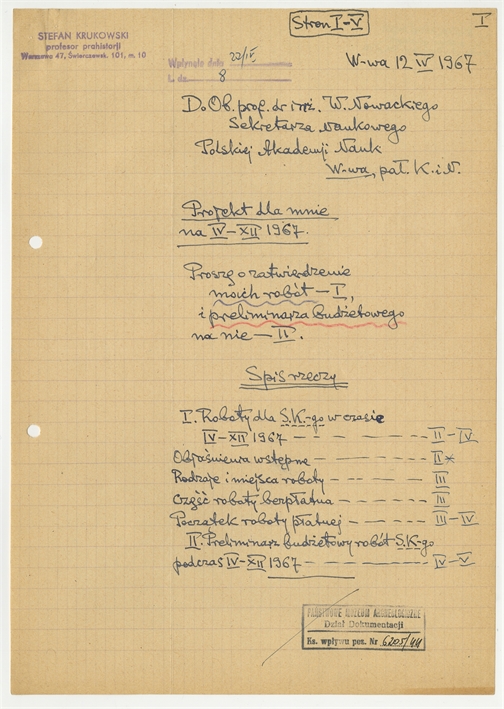 Stron I–V
I
STEFAN KRUKOWSKI
profesor prahistorji
Warszawa 47, Świerczewsk. 101, m. 10
Wpłynęło dnia 22/IV.
L. dz. 8
W-wa 12 IV 1967
D. Ob. prof. dr inż. W. Nowackiego
Sekretarza Naukowego
Polskiej Akademji Nauk
W-wa, pał. K. i N.
Projekt dla mnie
na IV–XII 1967.
Proszę o zatwierdzenie
moich robót – I,
i preliminarza budżetowego
na nie – II.
Spis rzeczy
I. Roboty dla S.K-go w czasie
IV–XII 1967 – – – – – – – II–V
Objaśnienia wstępne – – – – – – II*
Rodzaje i miejsca roboty – – – – – III
Część roboty bezpłatna – – – – – III
Początek roboty płatnej – – – – III–IV
II. Preliminarz budżetowy robót S.K-go
podczas IV–XII 1967 – – – – – – IV–V
PAŃSTWOWE MUZEUM ARCHEOLOGICZNE
Dział Dokumentacji
Ks. wpływu poz. Nr 6205/44